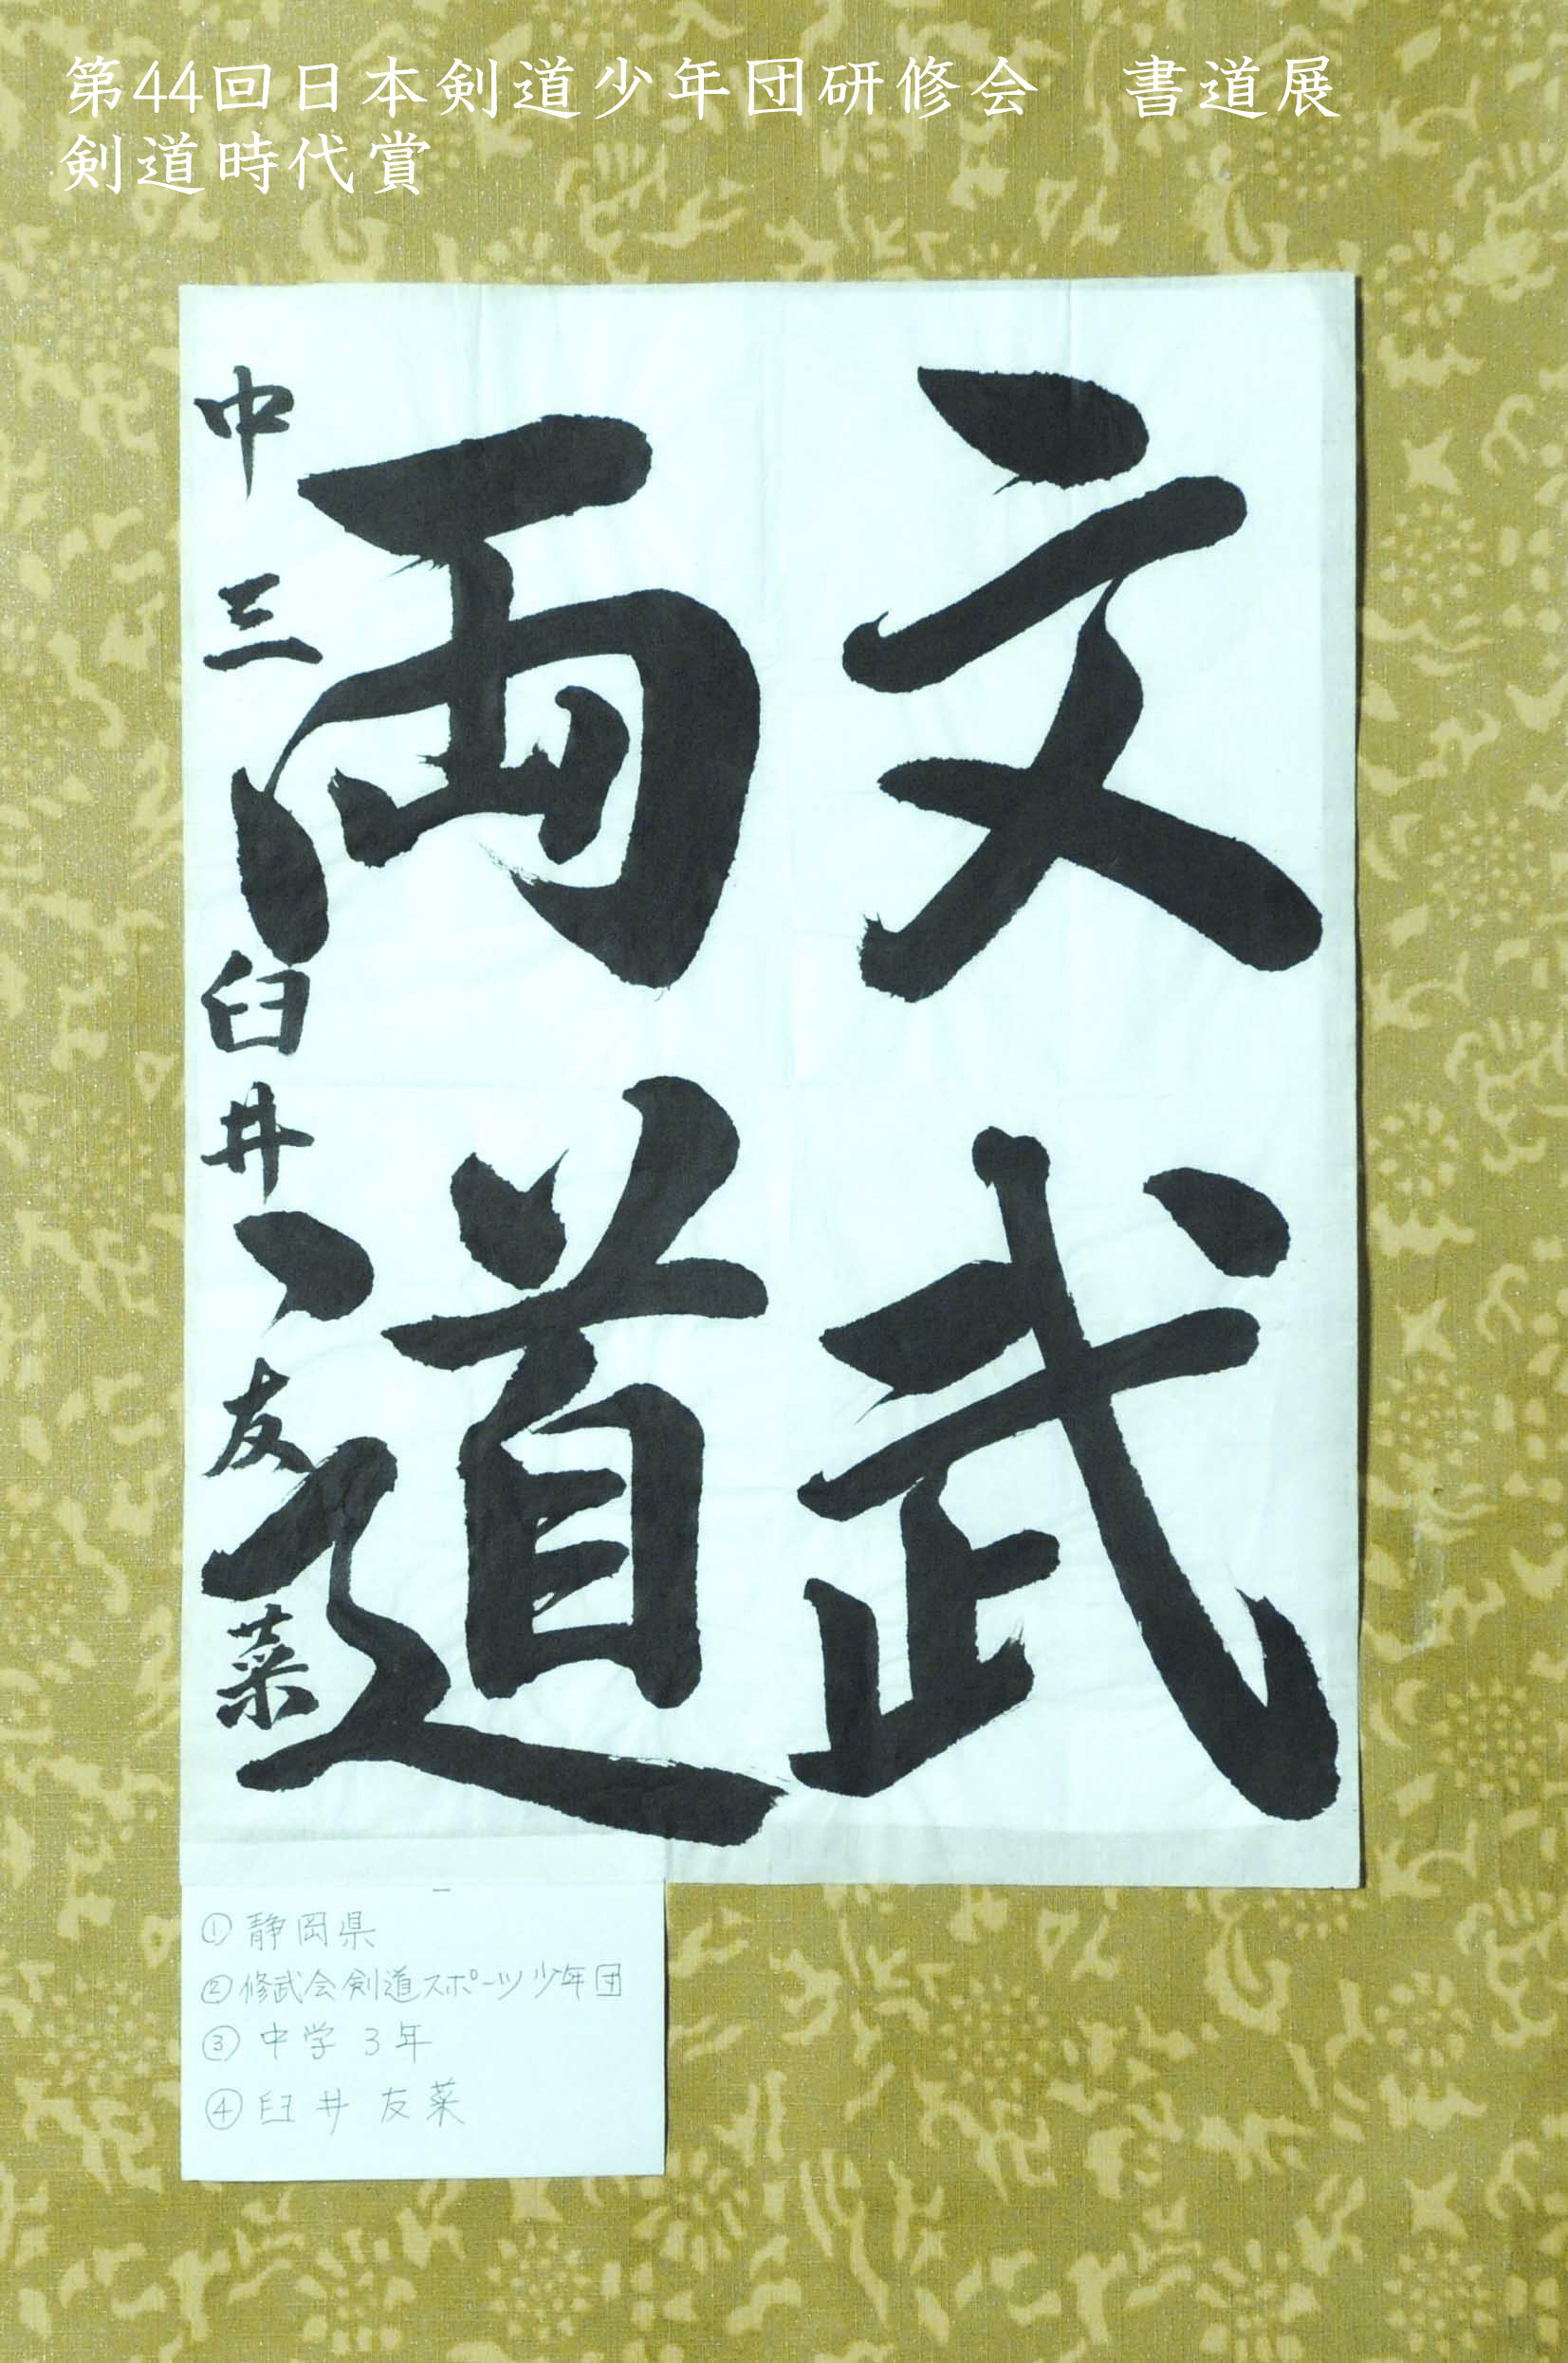 第44回日本剣道少年団研修会　書道展
剣道時代賞
文武
両道
中三 臼井友菜
①静岡県
②修武会剣道スポーツ少年団
③中学3年
④臼井 友菜